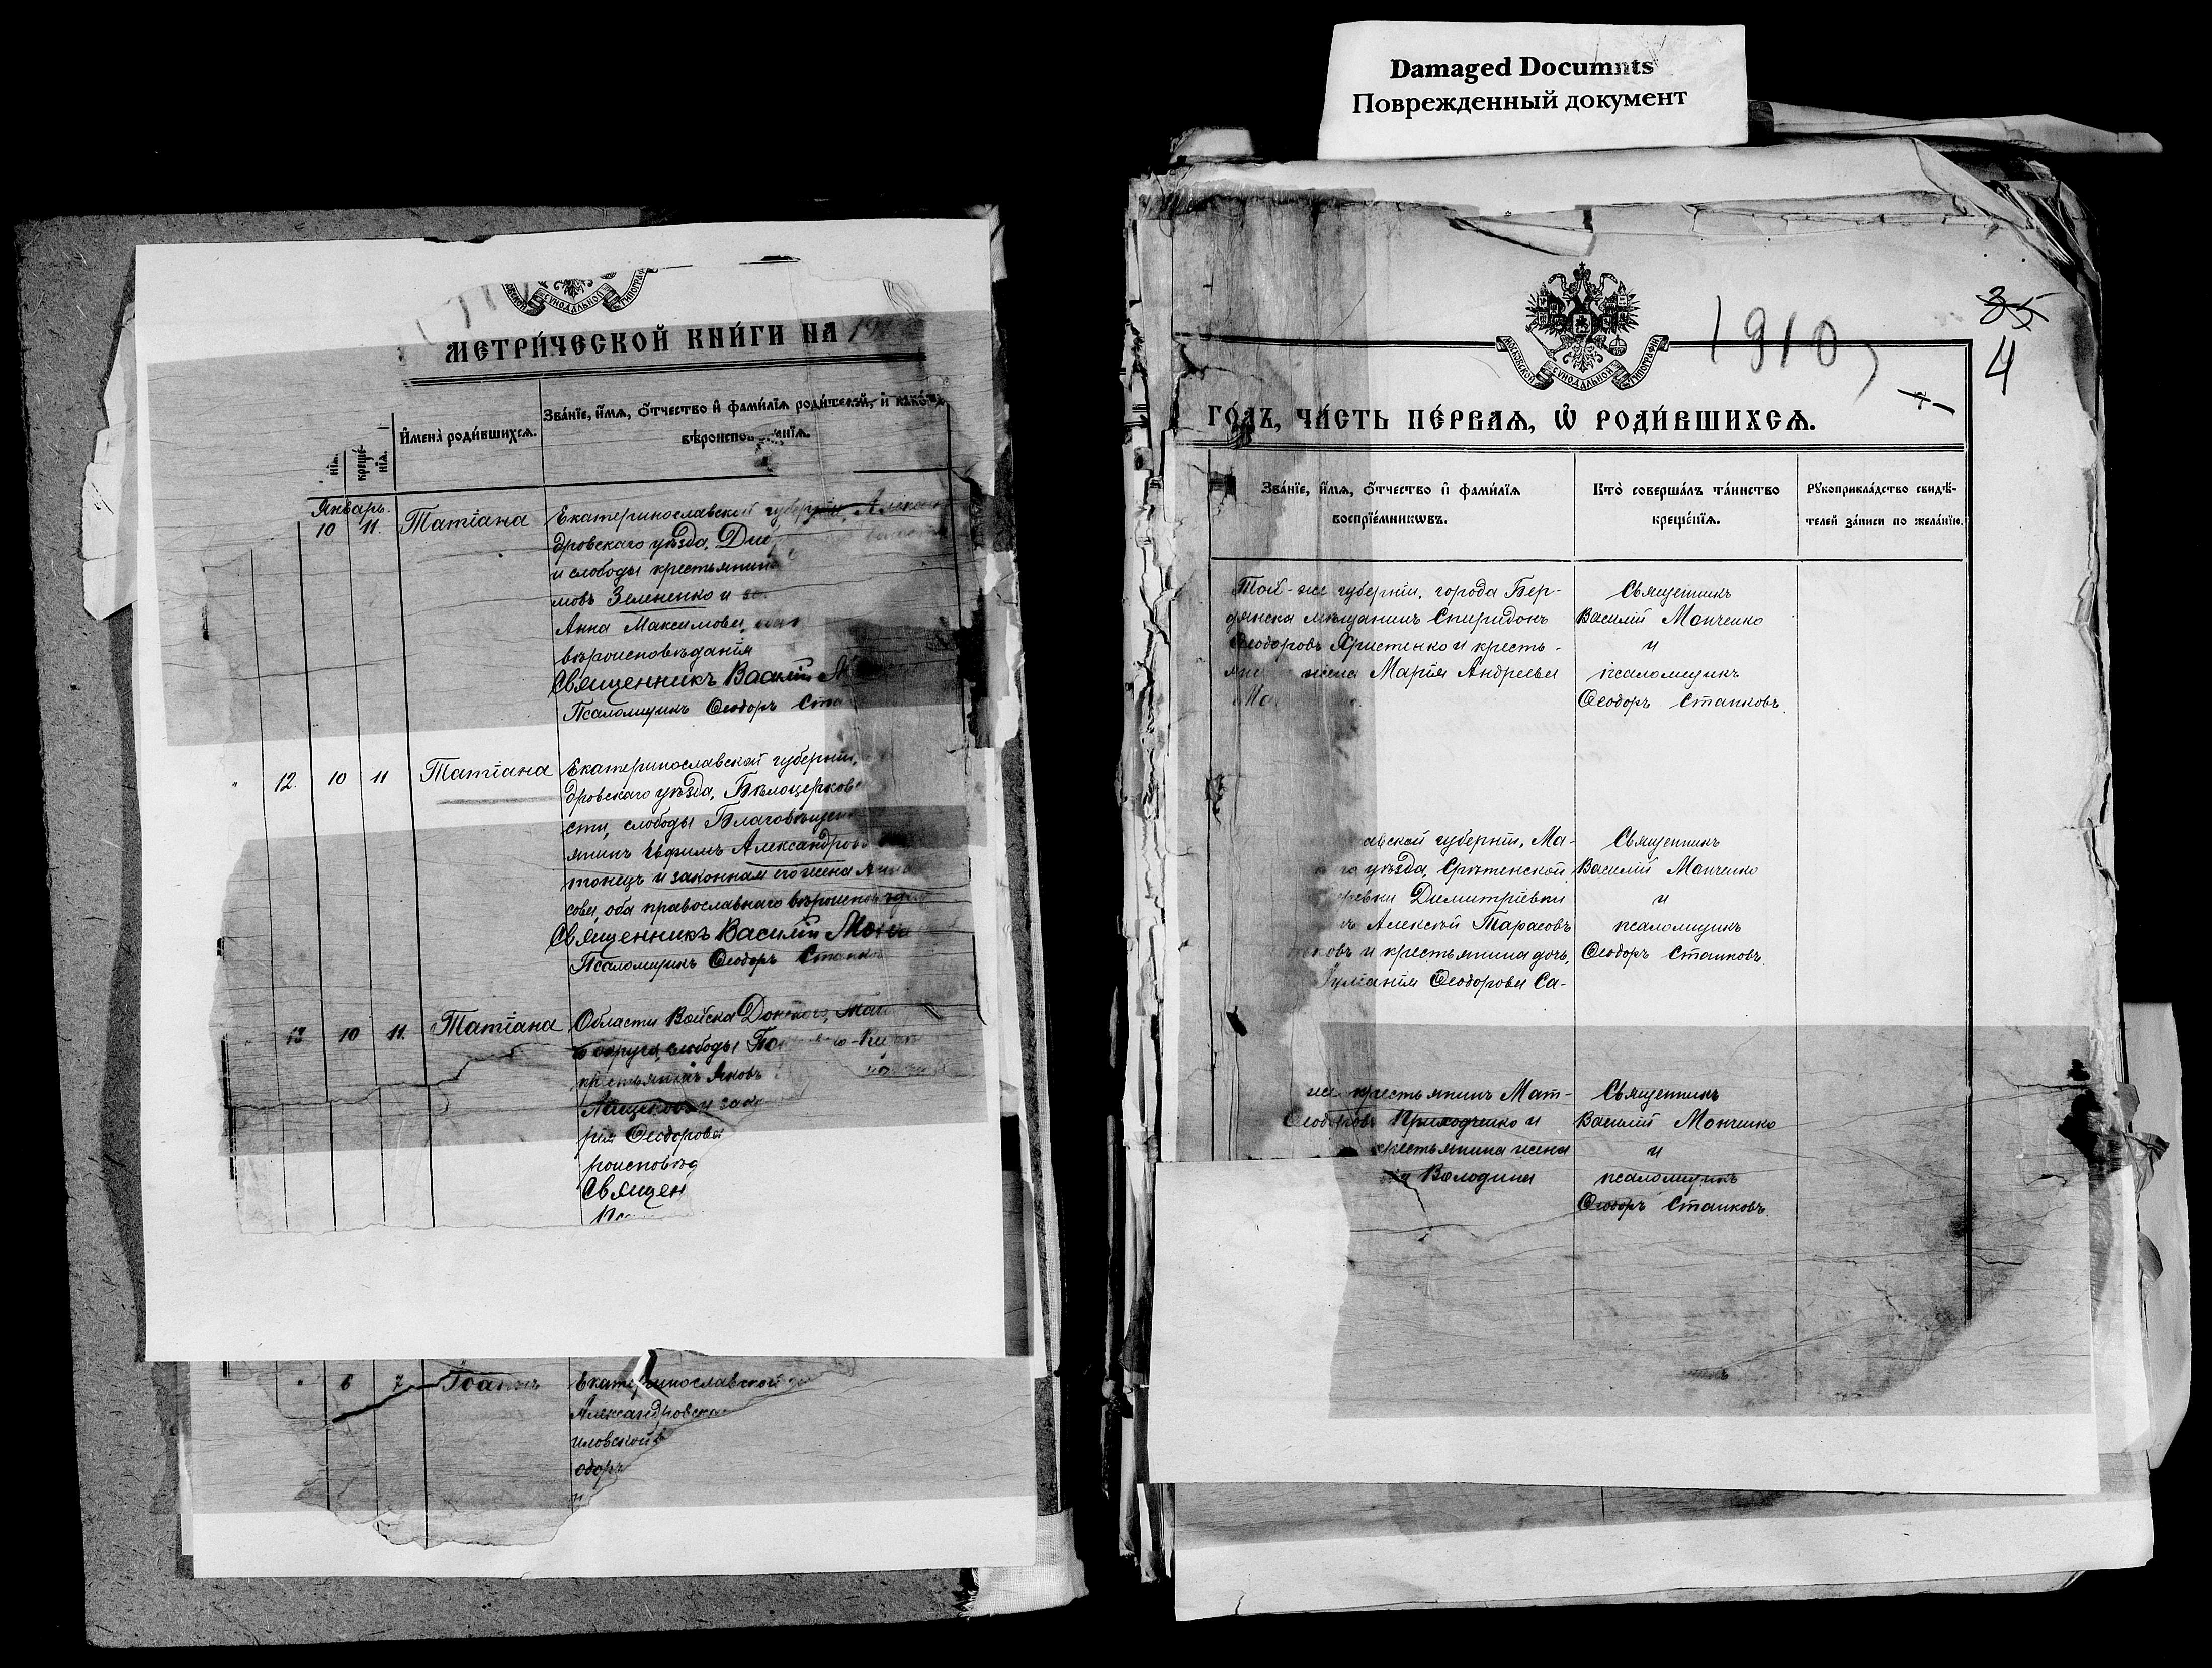 Damaged Documnts
Поврежденный документ
СУНОДАЛЬНОЙ
МЕТРИ́ЧЕСКОЙ КНИ́ГИ НА
Зва́нїе, и҆́мѧ, ѻ҆́тчество и҆ фами́лїѧ роди́телей, и҆
И҆мена̀ роди́вшихсѧ.
нїѧ.
креще́
нїѧ.
Январь.
10 11. Татіана
Екатеринославской губерніи, Алексан
дровскаго уѣзда,
и слободы крестьянин
мовъ Зелененко и
Анна Максимова,
вѣроисповѣданія
Священникъ Василій
Псаломщикъ Ѳеодоръ Ста
12. 10 11 Татіана
Екатеринославской губерніи,
дровскаго уѣзда, Бѣлоцерков
сти, слободы Благовѣщен
янинъ Ефимъ Александров
тонецъ и законная его жена Анна
сова, оба православнаго вѣроисповѣд
Священникъ Василій Мон
Псаломщикъ Ѳеодоръ Станк
13 10 11. Татіана
Области Войска Донского,
округа, слободы
крестьянинъ Яковъ
и зак
рія Ѳеодорова
роисповѣд
Священ
6 7 Іоаннъ
Екатеринославской
Александровска
иловской
одоръ
и
МОСКОВСКОЙ СУНОДАЛЬНОЙ ТИПОГРАФІИ
1910
35
4
ГО́ДЪ, ЧА́СТЬ ПЕ́РВАѦ, Ѡ҆ РОДИ́ВШИХСѦ.
Зва́нїе, и҆́мѧ, ѻ҆́тчество и҆ фами́лїѧ
воспрїе́мникѡвъ.
Кто̀ соверша́лъ та́инство
креще́нїѧ.
Рꙋкоприкла́дство свидѣ́-
телей за́писи по жела́нїю.
Той-же губерніи, города Бер-
дянска мѣщанинъ Спиридонъ
Ѳеодоровъ Христенко и кресть-
жена Марія Андреева
Священникъ
Василій Монченко
и
псаломщикъ
Ѳеодоръ Станковъ.
авской губерніи, Ма-
уѣзда, Срѣтенской
Димитріевки
Алексѣй Тарасовъ
ковъ и крестьянина дочь,
Іуліанія Ѳеодорова Са-
Священникъ
Василій Монченко
и
псаломщикъ
Ѳеодоръ Станковъ.
же крестьянинъ Мат-
Ѳеодоровъ Приходченко и
крестьянина жена
Володина
Священникъ
Василій Монченко
и
псаломщикъ
Ѳеодоръ Станковъ.